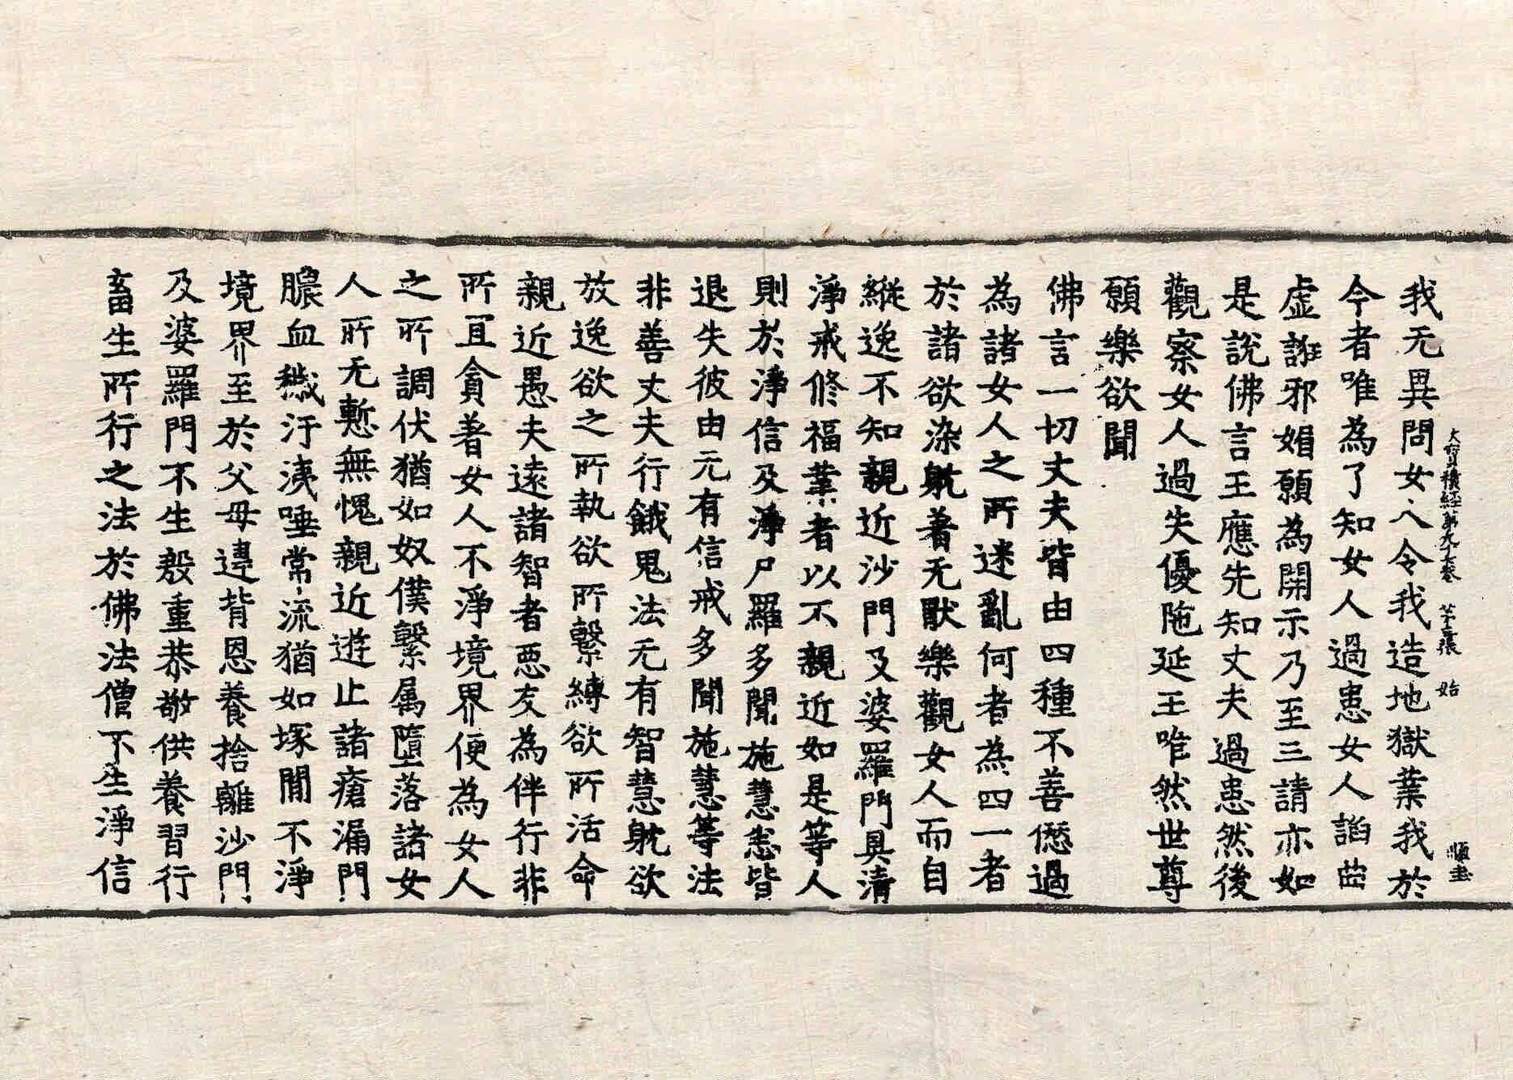 大寶積經第九十七卷 第二張 始 順重
我无異問女人令我造地獄業我於
今者唯為了知女人過患女人諂曲
虛誑邪媚願為開示乃至三請亦如
是說佛言王應先知丈夫過患然後
觀察女人過失優陁延王唯然世尊
願樂欲聞
佛言一切丈夫皆由四種不善𠎝過
為諸女人之所迷亂何者為四一者
於諸欲染躭著无猒樂觀女人而自
縱逸不知親近沙門及婆羅門具清
淨戒修福業者以不親近如是等人
則於淨信及淨尸羅多聞施慧悉皆
退失彼由元有信戒多聞施慧等法
非善丈夫行餓鬼法无有智慧躭欲
放逸欲之所執欲所繫縛欲所活命
親近愚夫遠諸智者惡友為伴行非
所宜貪著女人不淨境界便為女人
之所調伏猶如奴僕繫属墮落諸女
人所无慙無愧親近遊止諸瘡漏門
膿血穢汙洟唾常流猶如塚間不淨
境界至於父母違背恩養捨離沙門
及婆羅門不生敬重恭敬供養習行
畜生所行之法於佛法僧不生淨信